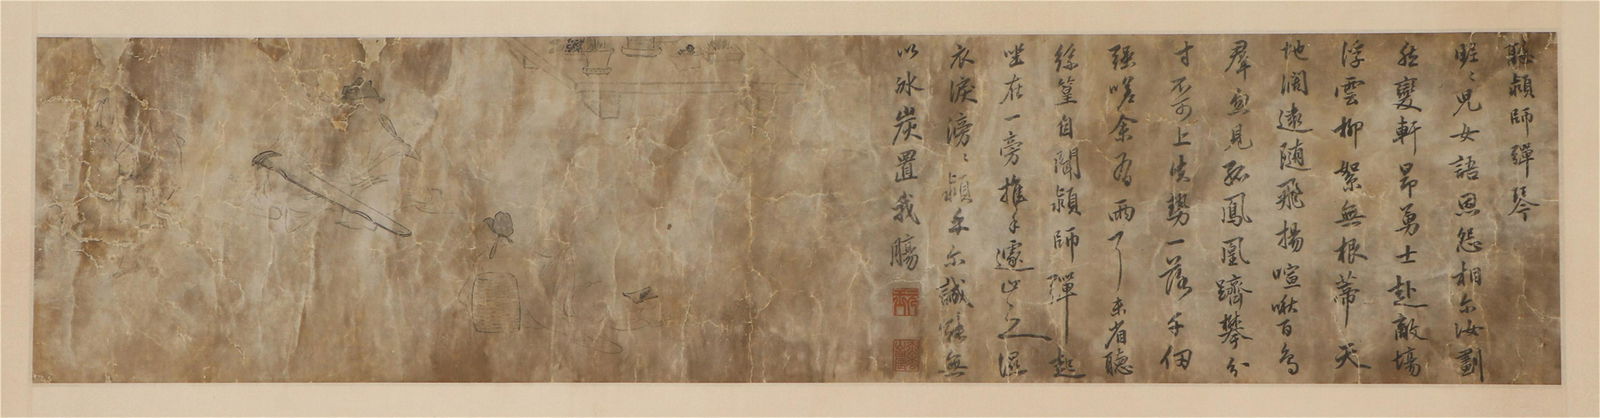 聽頴師彈琴
昵〻児女語恩怨相尔汝劃
然變軒昂勇士赴敵場
浮雲柳絮無根蒂天
地濶遠随飛揚喧啾百鳥
羣忽見孤鳳凰躋攀分
寸不可上失勢一落千仞
强嗟余有兩耳未省聽
絲篁自聞頴師彈起
坐在一旁推手遽止之濕
衣淚滂〻頴乎尔誠能無
以冰炭置我膓